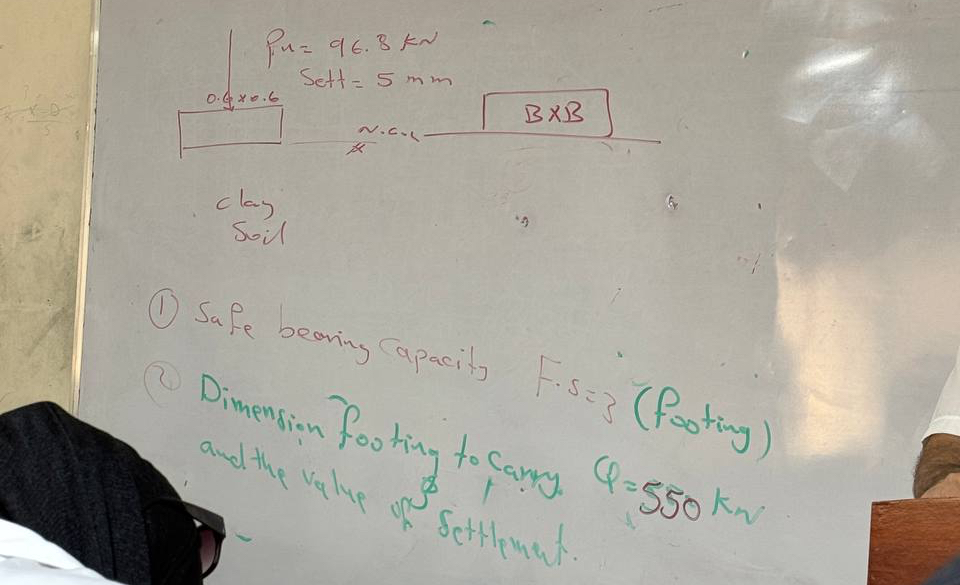 Pu = 96.8 kN
Sett = 5 mm
0.6 x 0.6
N.C.L
B x B
clay
Soil
① Safe bearing Capacity F.S = 3 (footing)
② Dimension footing to Carry Q = 550 kN
and the value of Settlement.